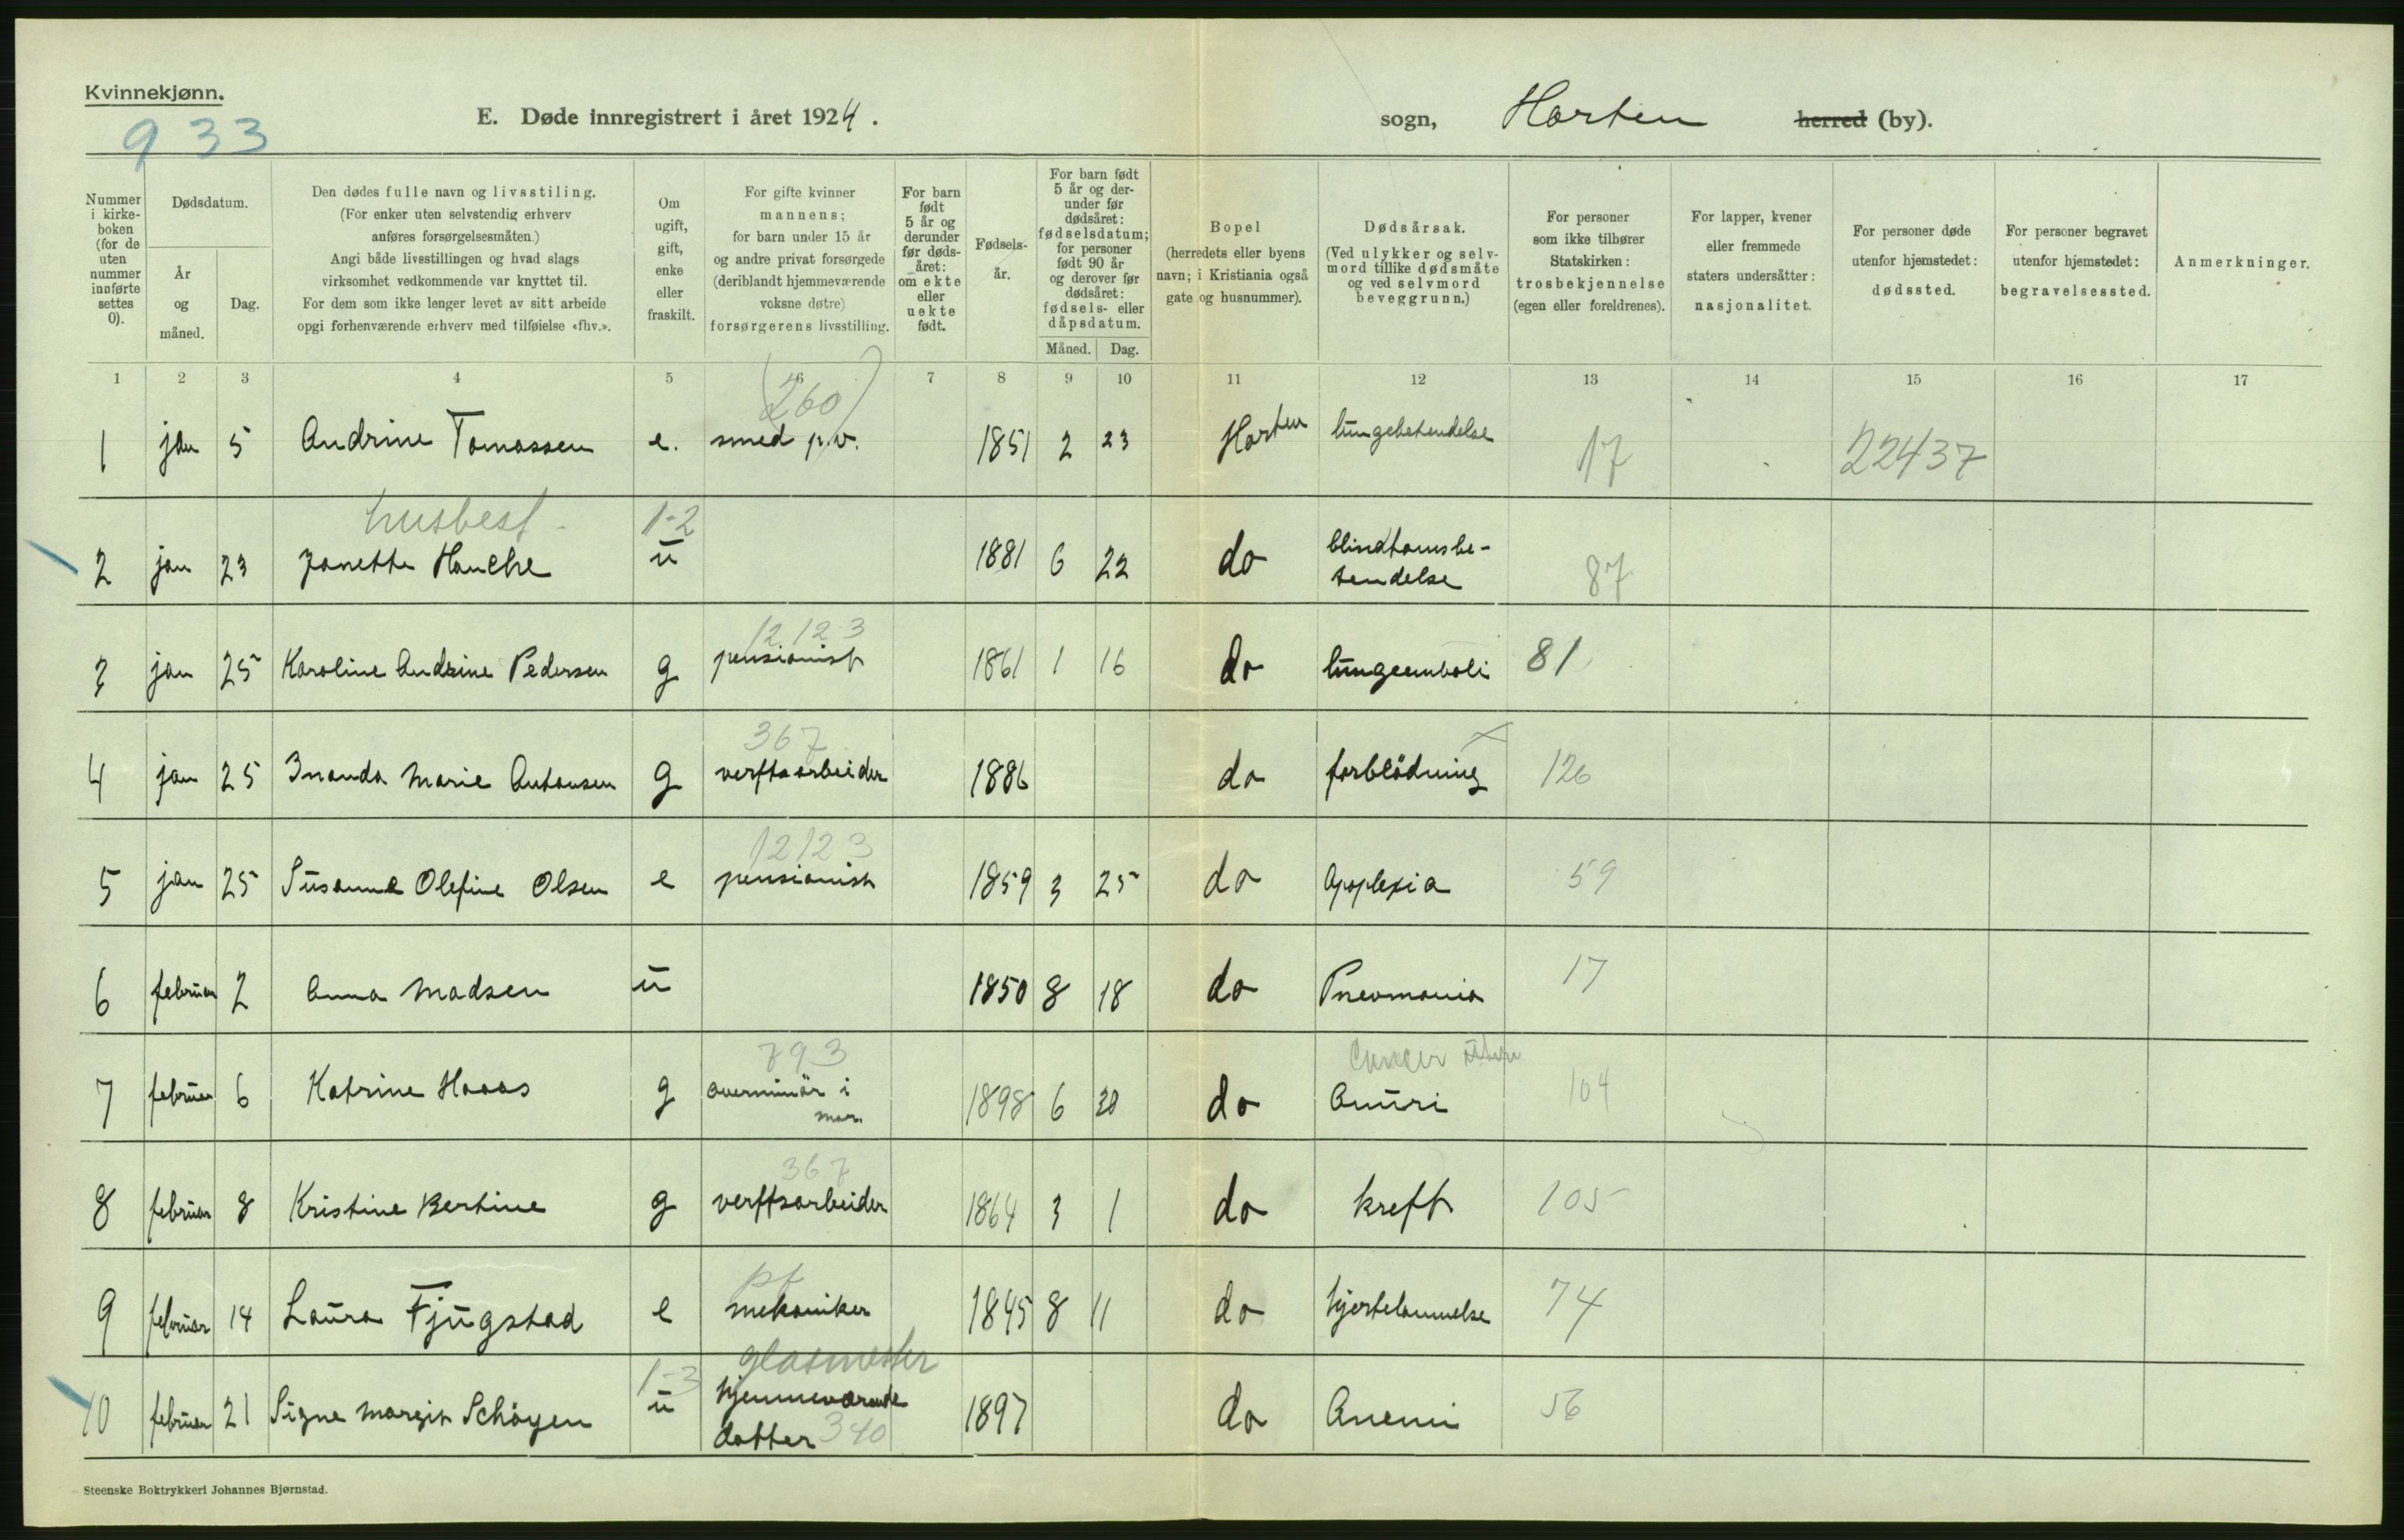 Kvinnekjønn.
933
E. Døde innregistrert i året 1924.
sogn, Horten herred (by).
Nummer i kirke- boken (for de uten nummer innførte settes 0).
Dødsdatum.
År og måned.
Dag.
Den dødes fulle navn og livsstiling.
(For enker uten selvstendig erhverv
anføres forsørgelsesmåten.)
Angi både livsstillingen og hvad slags
virksomhet vedkommende var knyttet til.
For dem som ikke lenger levet av sitt arbeide
opgi forhenværende erhverv med tilføielse «fhv.».
Om ugift, gift, enke eller fraskilt.
For gifte kvinner
mannens;
for barn under 15 år
og andre privat forsørgede
(deriblandt hjemmeværende
voksne døtre)
forsørgerens livsstilling.
For barn født 5 år og derunder før døds- året: om ekte eller uekte født.
Fødsels- år.
For barn født 5 år og der- under før dødsåret: fødselsdatum; for personer født 90 år og derover før dødsåret: fødsels- eller dåpsdatum.
Måned. Dag.
Bopel
(herredets eller byens
navn; i Kristiania også
gate og husnummer).
Dødsårsak.
(Ved ulykker og selv-
mord tillike dødsmåte
og ved selvmord
beveggrunn.)
For personer
som ikke tilhører
Statskirken:
trosbekjennelse
(egen eller foreldrenes).
For lapper, kvener
eller fremmede
staters undersåtter:
nasjonalitet.
For personer døde
utenfor hjemstedet:
dødssted.
For personer begravet
utenfor hjemstedet:
begravelsessted.
Anmerkninger.
1 2 3 4 5 6 7 8 9 10 11 12 13 14 15 16 17
(260)
1 jan 5 Andrine Tomassen e. smed p.v. 1851 2 23 Horten lungebetendelse 17 22437
husbest. 1-2
2 jan 23 Janette Hauche u 1881 6 22 do blindtamsbe-
tendelse 87
12123
3 jan 25 Karoline Andrine Pedersen g pensionist 1861 1 16 do lungeemboli 81
367
4 jan 25 Inanda Marie Antonsen g verftsarbeider 1886 do forblødning 126
12123
5 jan 25 Susanna Olefine Olsen e pensionist 1859 3 25 do Apoplexia 59
6 februar 2 Anna Madsen u 1850 8 18 do Pneomonia 17
793 Cancer
7 februar 6 Katrine Haaas g overminør i
mar. 1898 6 do Anuri 104
367
8 februar 8 Kristine Bertine g verftsarbeider 1864 3 1 do kreft 105
pf
9 februar 14 Laura Fjugstad e mekaniker 1845 8 11 do hjertelammelse 74
1-3 glasmester
10 februar 21 Signe Margit Schøyen u hjemmeværende
datter 340 1897 do Anemi 56
Steenske Boktrykkeri Johannes Bjørnstad.